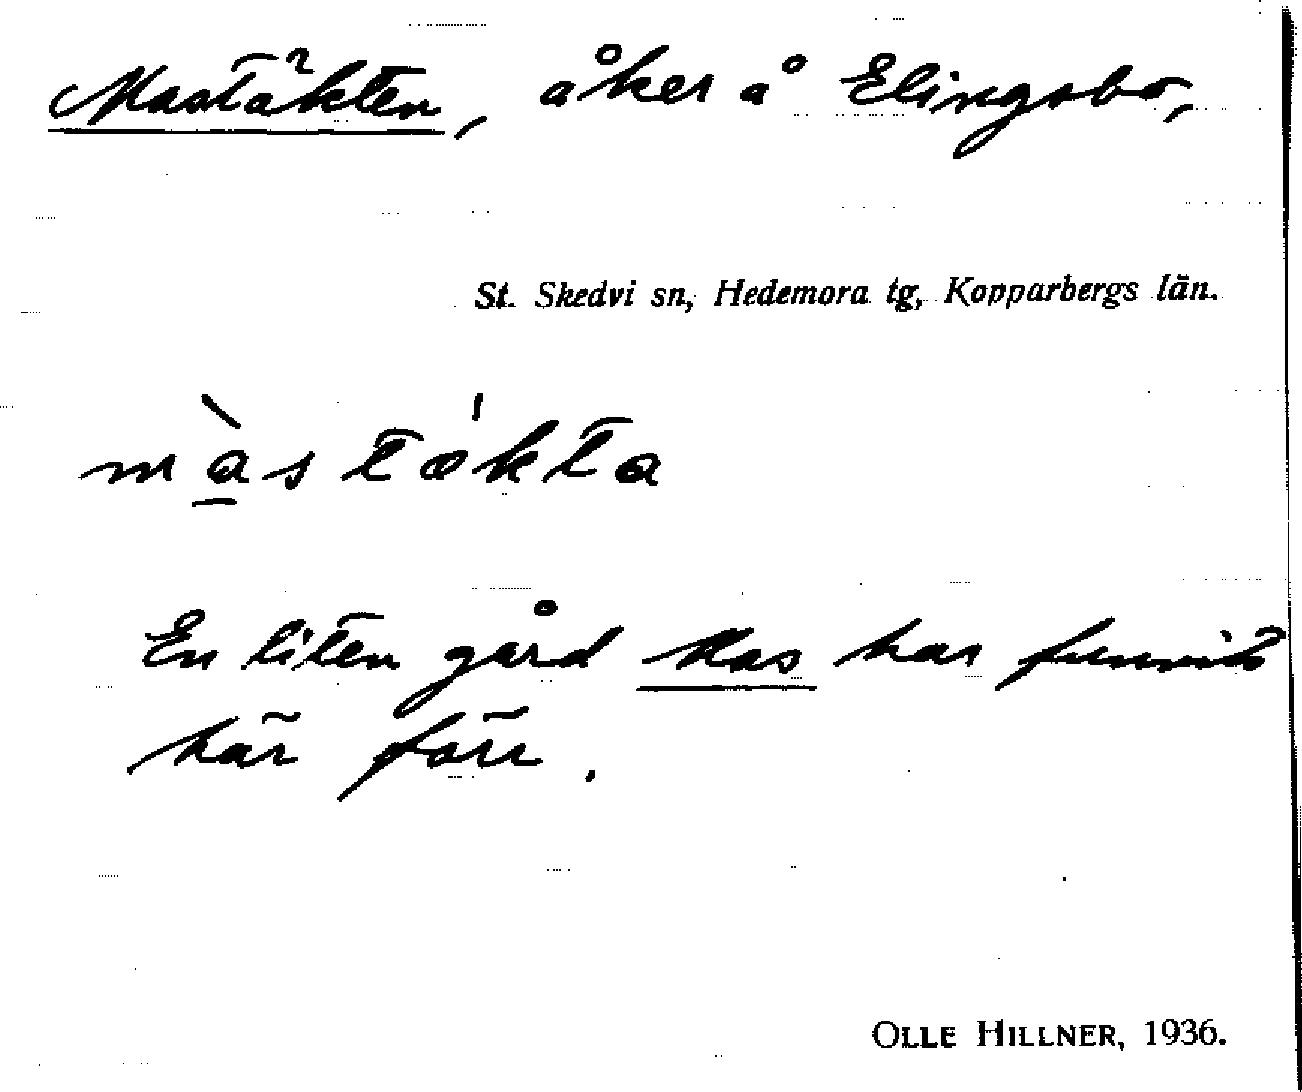 Mastäkten, åker å Elingsbo,
St. Skedvi sn, Hedemora tg, Kopparbergs län.
màstækta
En liten gård Mas har funnits
här förr.
OLLE HILLNER, 1936.